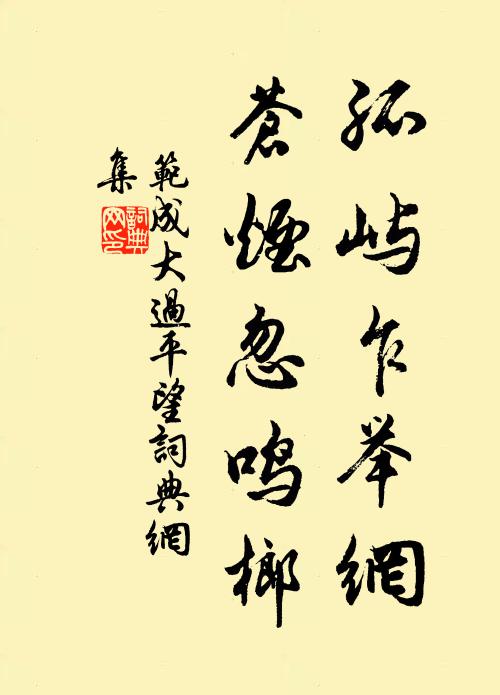 孤屿乍举網
蒼煙忽鸣榔
範成大過平望詞典網
集
詞典
网印